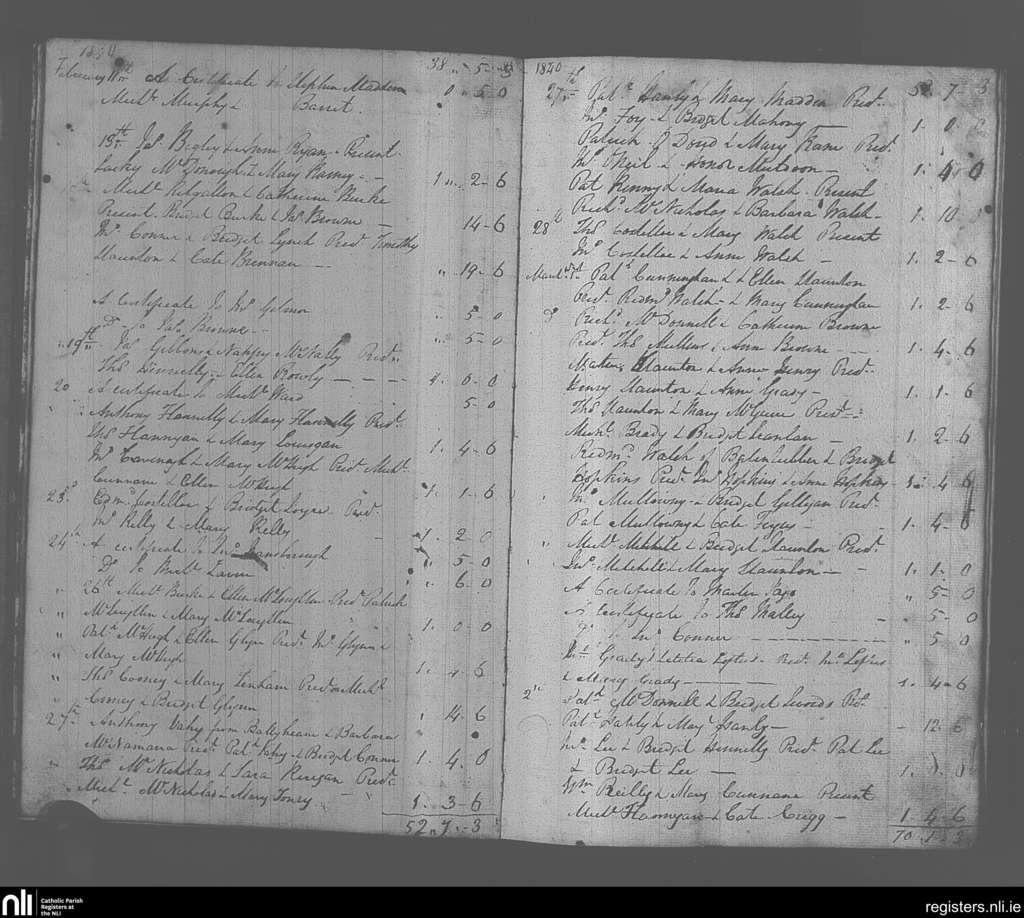 1840
38 " 5 - 3
February 11th A Certificate to Stephen Madden 0 5 0
Michl Murphy &
Barret
13th Jas Begley & Anne Ryan - Present
Lacky McDonough & Mary 1 " 2 - 6
Michl Ridgallon & Catherine Burke
Present Bridget Burke & Jas Browne - 14 - 6
Jno Connor & Bridget Lynch Pret Timothy
Staunton & Cate Brennan - " 19 - 6
A Certificate to Gilmor " 5 - 0
Do to Pat Browne - " 5 - 0
19th Gibbons & Nappy McNally Pret
Ths Donnelly - Ellen Rowly - 1 - 0 - 0
20 A certificate to Michl Ward 5 - 0
Anthony Flannelly & Mary Flannelly Pret
Ths Flannyan & Mary 1 - 4 - 6
Jno Cavenagh & Mary McHugh Pret Michl
Cunnane & Ellen McHugh 1 - 1 - 6
23d Costelloe & Bridget Pret
Jno Kelly & Mary Kelly - 1 - 2 - 0
24th A certificate to Jno Hansborough " 5 - 0
Do to Michl Lavin " 6 - 0
" 26th Michl Burke & Ellen McLoughlin Pret Patrick
" McLoughlin & Mary McLoughlin 1 - 0 - 0
" Patk McHugh & Ellen Glynn Pret Jno Glynn &
" Mary McHugh 1 - 4 - 6
" Ths Cooney & Mary Lenham Pret Michl
" Cooney & Bridget Glynn " 14 - 6
27th Anthony Vahy from Ballyhean & Barbara
McNamara Pret Patk Vahy & Bridget Connor 1 - 4 - 0
" Ths McNicholas & Sara Kerrigan Pret
Michl McNicholas & Mary 1 - 3 - 6
52 " 7 - 3
1840
52 - 7 - 3
27th Patk Hanly & Mary Madden Pret
Jno Foy & Bridget Mahony - 1 - 0 - 0
Patrick & Mary Kane Pret
Jno Neil & Honor - 1 - 4 - 0
Pat Kenny & Maria Walsh Present
Richd McNicholas & Barbara Walsh - 1 - 10 - 0
28th Ths Costelloe & Mary Walsh Present
Jno Costelloe & Anne Walsh - 1 - 2 - 0
March 1st Patk Cunningham & Ellen Staunton
Pret Redmd Walsh & Mary Cunningham 1 - 2 - 6
Do Richd McDonnell & Catherine Browne
Pret Ths Mullins & Ann Browne - - 1 - 4 - 6
Martin Staunton & Anne Henry Pret
Henry Staunton & Anne Grady - 1 - 1 - 6
Ths Staunton & Mary McGuire Pret
Michl Brady & Bridget Scanlan - 1 - 2 - 6
Redmd Walsh of Balintubber & Bridget
Hopkins Pret Jno Hopkins & Anne Hopkins 1 - 4 - 6
Jno Mullowny & Bridget Gilligan Pret
Pat Mullowny & Cate - 1 - 4 - 6
" Michl Mitchill & Bridget Staunton Pret
Jno Mitchell & Mary Staunton - 1 - 1 - 0
A Certificate to Martin " 5 - 0
A Certificate to Ths Malley - " 5 - 0
Do to Jno Connor - " 5 0
Grady & Letetia Loftus Pret Jno Loftus
& Mary Grady - 1 - 4 - 6
2d Patk McDonnell & Bridget Pret
Patk & Mary - - 12 - 6
Jno Lee & Bridget Hennelly Pret Pat Lee
& Bridget Lee -
Wm Reilly & Mary Cunnane Present
Michl Flannyan & Cate - 1 - 4 - 6
70 - 1 - 3
nli
Catholic Parish
Registers at
the NLI
registers.nli.ie